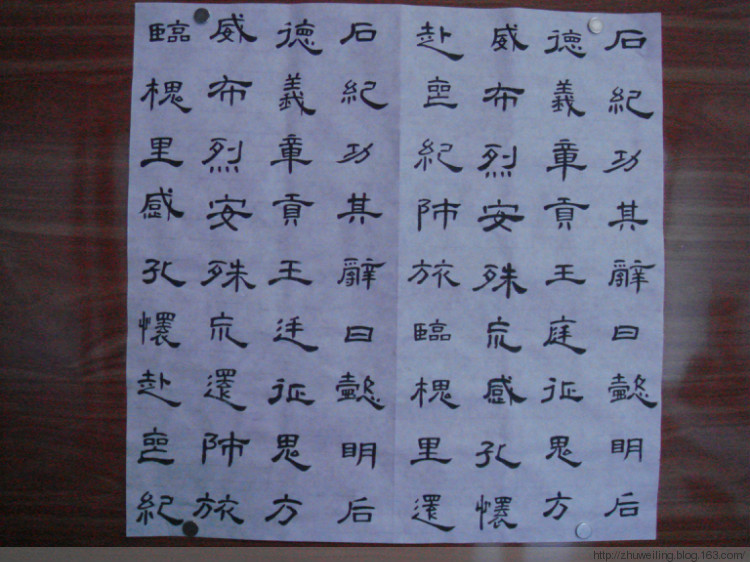 石紀功其辭曰懿明后
德義章貢王庭征鬼方
威布烈安殊巟感孔懷
赴喪紀師旅臨槐里還
石紀功其辭曰懿明后
德義章貢王廷征鬼方
威布烈安殊巟還師旅
臨槐里感孔懷赴喪紀
http://zhuweiling.blog.163.com/